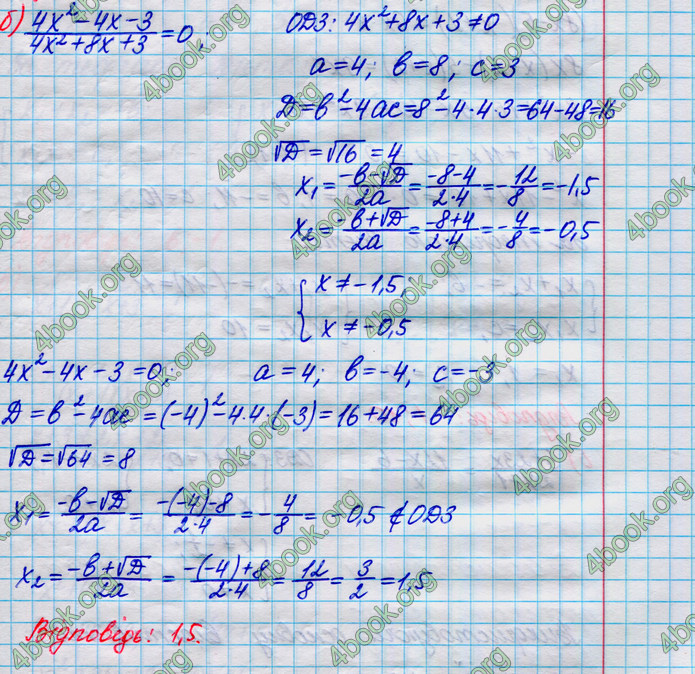 б) (4x² - 4x - 3)/(4x² + 8x + 3) = 0; ОДЗ: 4x² + 8x + 3 ≠ 0
a = 4; b = 8; c = 3
D = b² - 4ac = 8² - 4·4·3 = 64 - 48 = 16
√D = √16 = 4
x₁ = (-b - √D)/2a = (-8 - 4)/(2·4) = -12/8 = -1,5
x₂ = (-b + √D)/2a = (-8 + 4)/(2·4) = -4/8 = -0,5
{ x ≠ -1,5,
x ≠ -0,5
4x² - 4x - 3 = 0; a = 4; b = -4; c = -3
D = b² - 4ac = (-4)² - 4·4·(-3) = 16 + 48 = 64
√D = √64 = 8
x₁ = (-b - √D)/2a = (-(-4) - 8)/(2·4) = -4/8 = -0,5 ∉ ОДЗ
x₂ = (-b + √D)/2a = (-(-4) + 8)/(2·4) = 12/8 = 3/2 = 1,5
Відповідь: 1,5.
4book.org